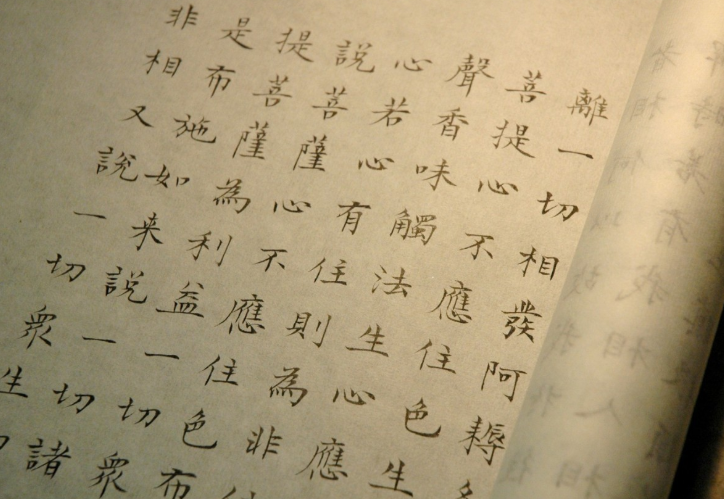 離一切相發阿耨
菩提心不應住色生
聲香味觸法生心應
心若心有住則為非
說菩薩心不應住色布
提菩薩為利益一切衆
是布施如来說一切諸
非相又說一切衆生